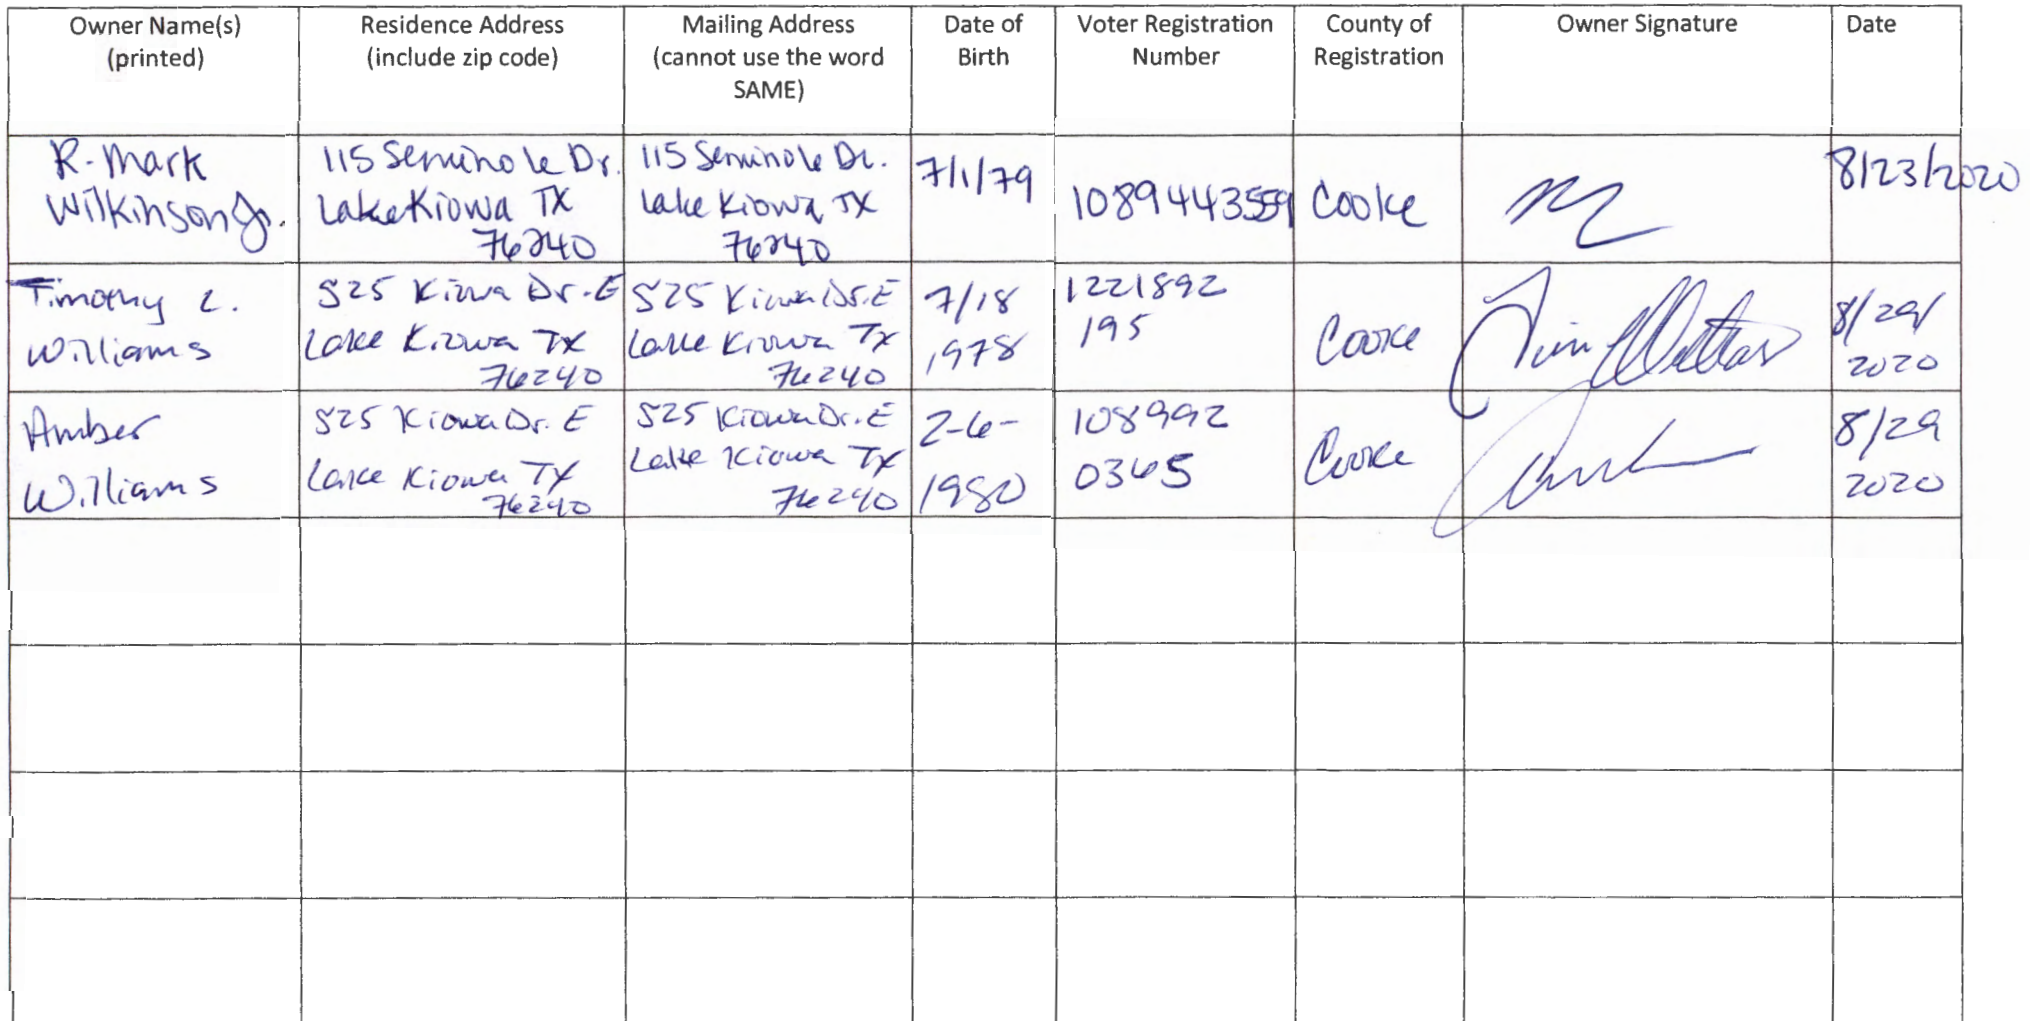 Owner Name(s)
(printed)
Residence Address
(include zip code)
Mailing Address
(cannot use the word
SAME)
Date of
Birth
Voter Registration
Number
County of
Registration
Owner Signature
Date
R. Mark
Wilkinson Jr.
115 Seminole Dr.
Lake Kiowa TX
76240
115 Seminole Dr.
Lake Kiowa TX
76240
7/1/79
1089443559
Cooke
8/23/2020
Timothy L.
Williams
525 Kiowa Dr. E
Lake Kiowa TX
76240
525 Kiowa Dr. E
Lake Kiowa TX
76240
7/18
1978
1221892
195
Cooke
Tim
8/29/
2020
Amber
Williams
525 Kiowa Dr. E
Lake Kiowa TX
76240
525 Kiowa Dr. E
Lake Kiowa TX
76240
2-6-
1980
108992
0365
Cooke
8/29
2020